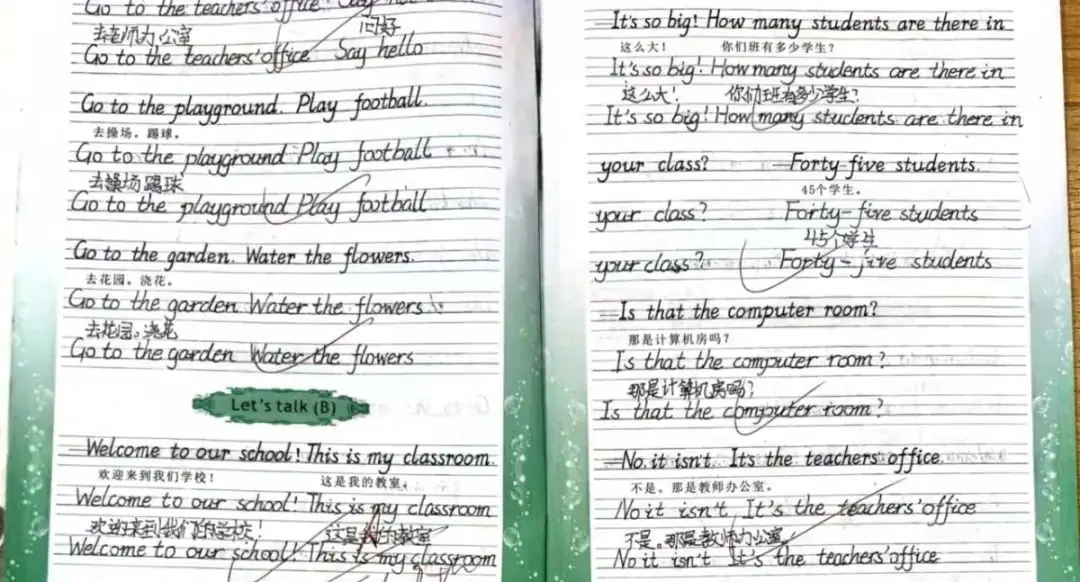 Go to the teachers' office. Say
去老师办公室 问好
Go to the teachers' office Say hello
Go to the playground. Play football.
去操场。踢球。
Go to the playground Play football
去操场踢球
Go to the playground Play football
Go to the garden. Water the flowers.
去花园。浇花。
Go to the garden Water the flowers.
去花园。浇花
Go to the garden Water the flowers
Let's talk (B)
Welcome to our school! This is my classroom.
欢迎来到我们学校! 这是我的教室。
Welcome to our school! This is my classroom
欢迎来到我们的学校! 这是我的教室
Welcome to our school! This is my classroom
—It's so big! How many students are there in
这么大! 你们班有多少学生?
It's so big! How many students are there in
这么大! 你们班有多少学生?
It's so big! How many students are there in
your class? —Forty-five students.
45个学生。
your class? Forty-five students
45个学生
your class? Forty-five students
—Is that the computer room?
那是计算机房吗?
Is that the computer room?
那是计算机房吗?
Is that the computer room?
—No, it isn't. It's the teachers' office.
不是。那是教师办公室。
No it isn't. It's the teachers' office
不是。那是教师办公室
No it isn't It's the teachers' office